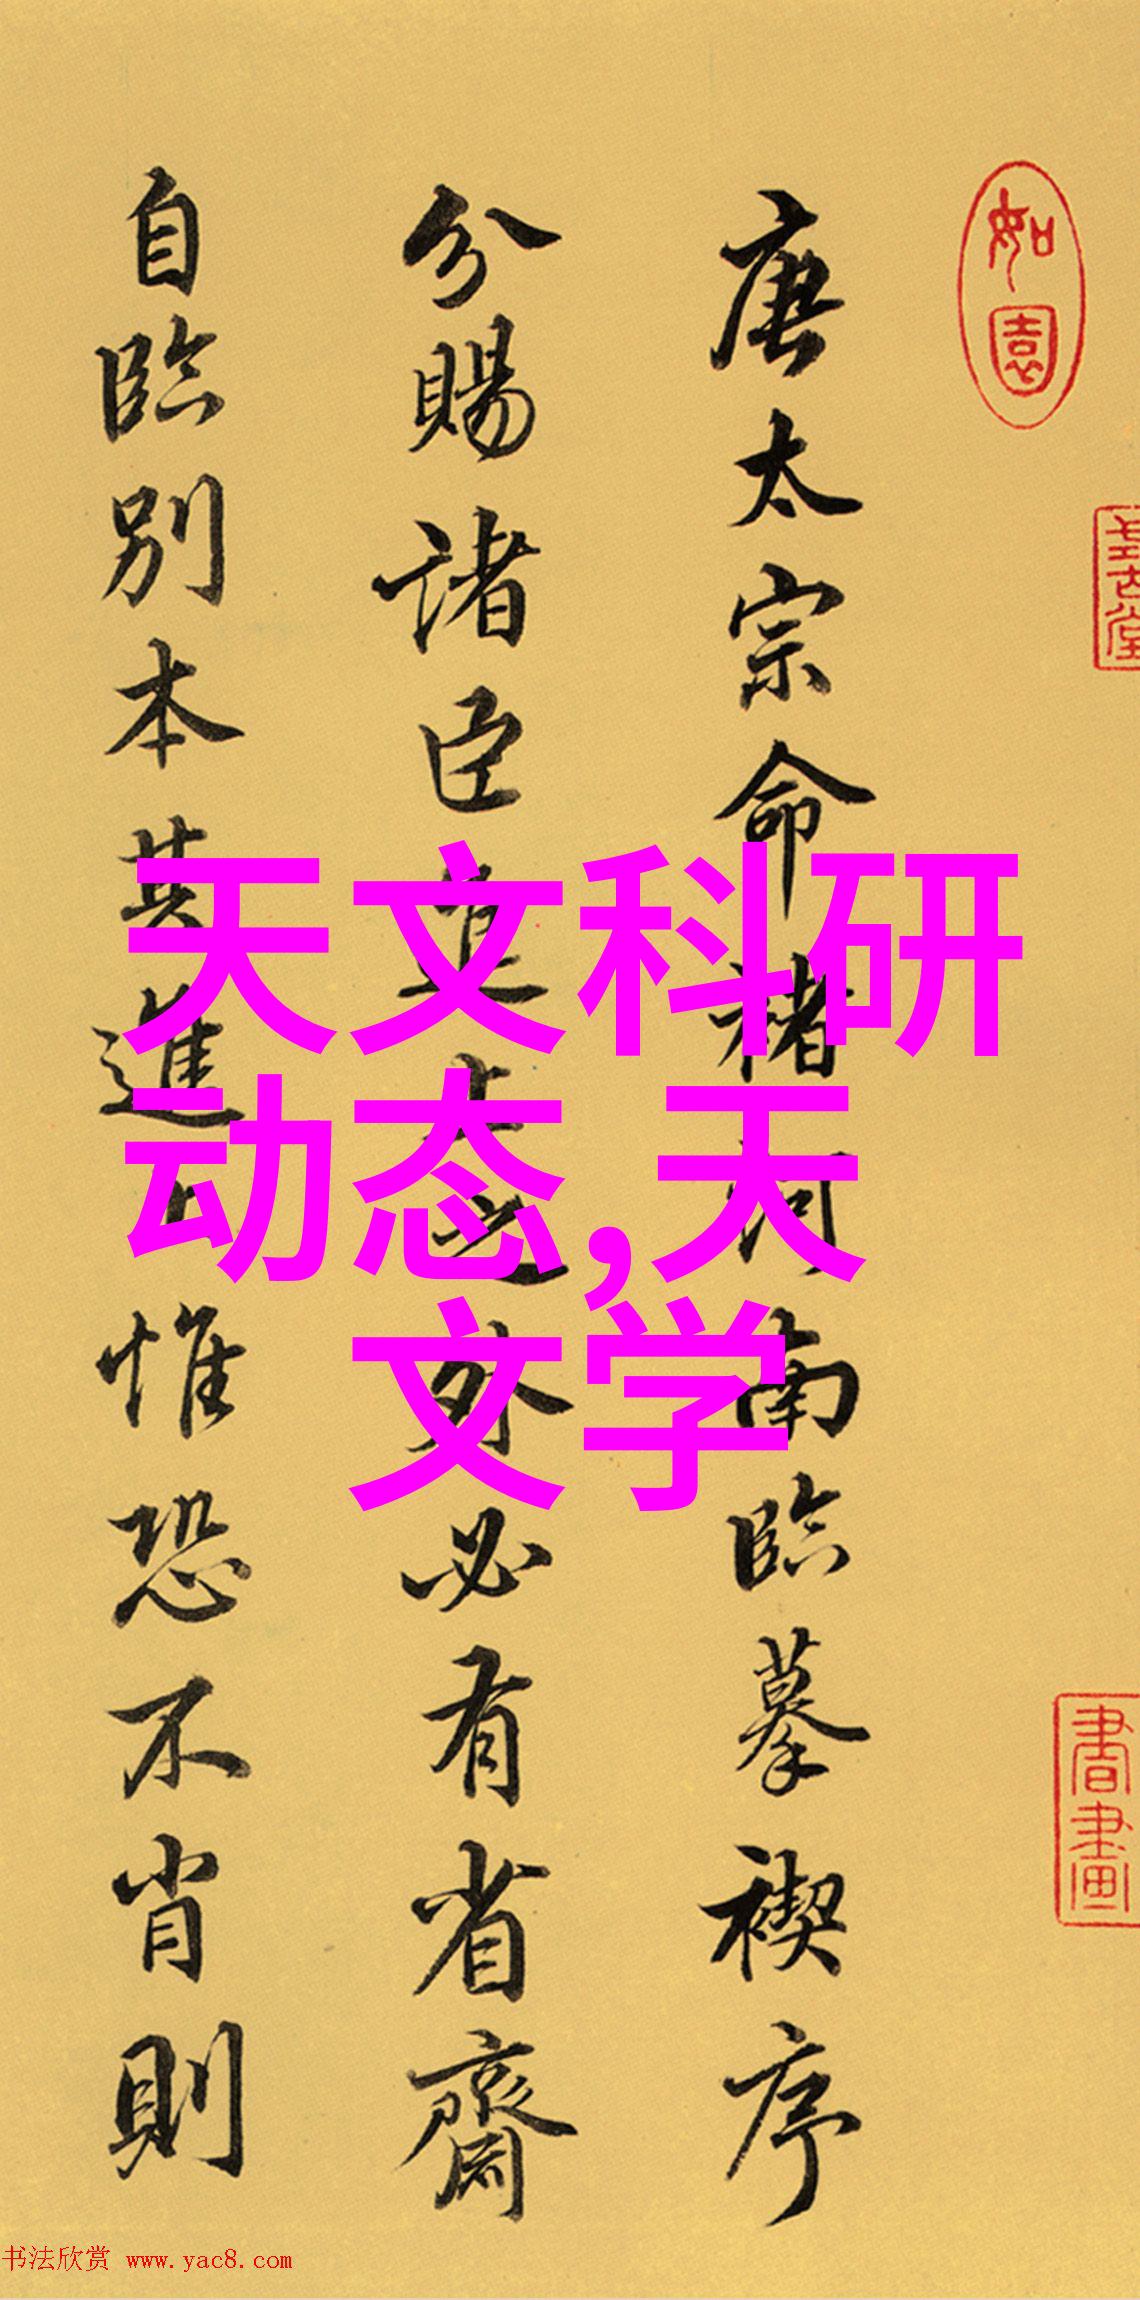 如園
書畫
唐太宗命褚河南臨摹禊序
分賜諸臣之外必有省齋
自臨別本其進惟恐不肖則
天文科研
动态,天
文学
书法欣赏 www.yac8.com